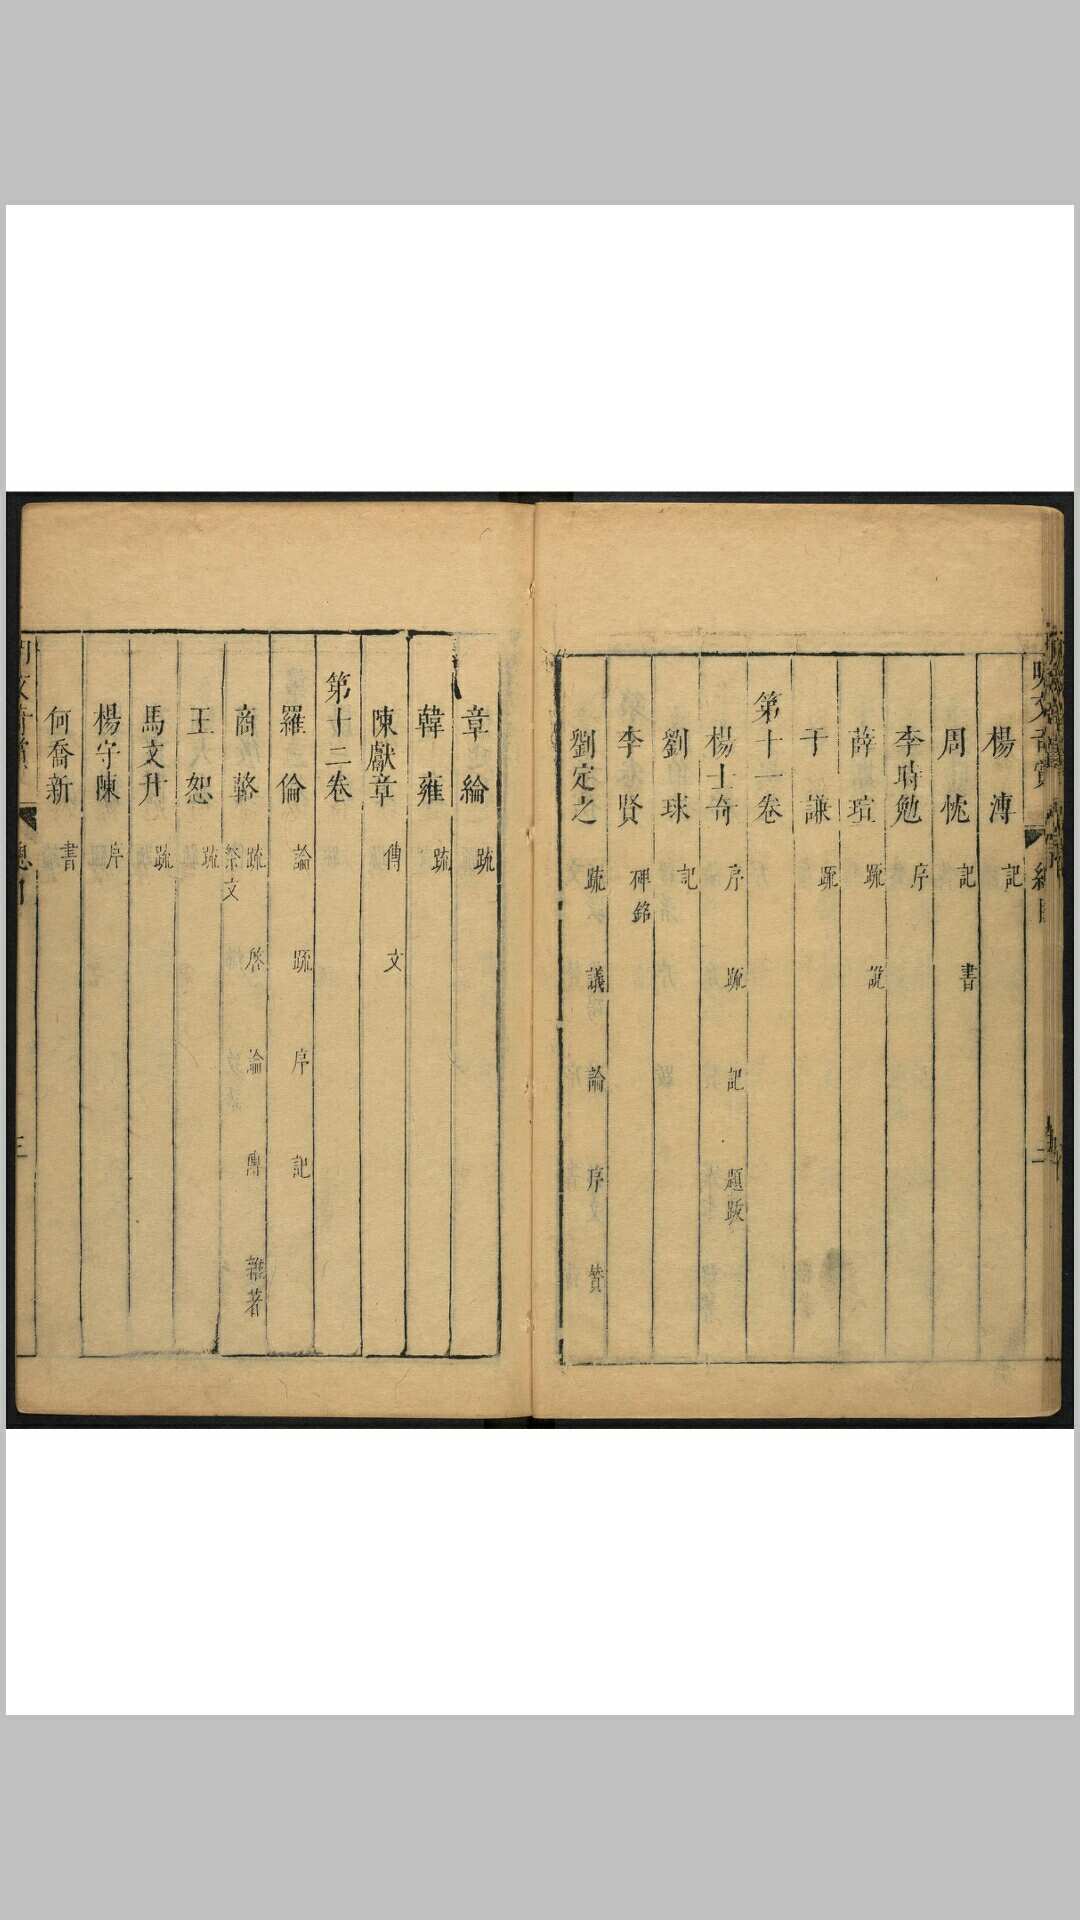 楊溥 記
周忱 記 書
李時勉 序
薛瑄 疏 說
于謙 疏
第十一卷
楊士奇 序 疏 記 題跋
劉球 記
李賢 碑銘
劉定之 疏 議 論 序 贊
章綸 疏
韓雍 疏
陳獻章 傳 文
第十二卷
羅倫 論 疏 序 記
商輅 疏 啓 論 傳 雜著 祭文
王恕 疏
馬文升 疏
楊守陳 序
何喬新 書